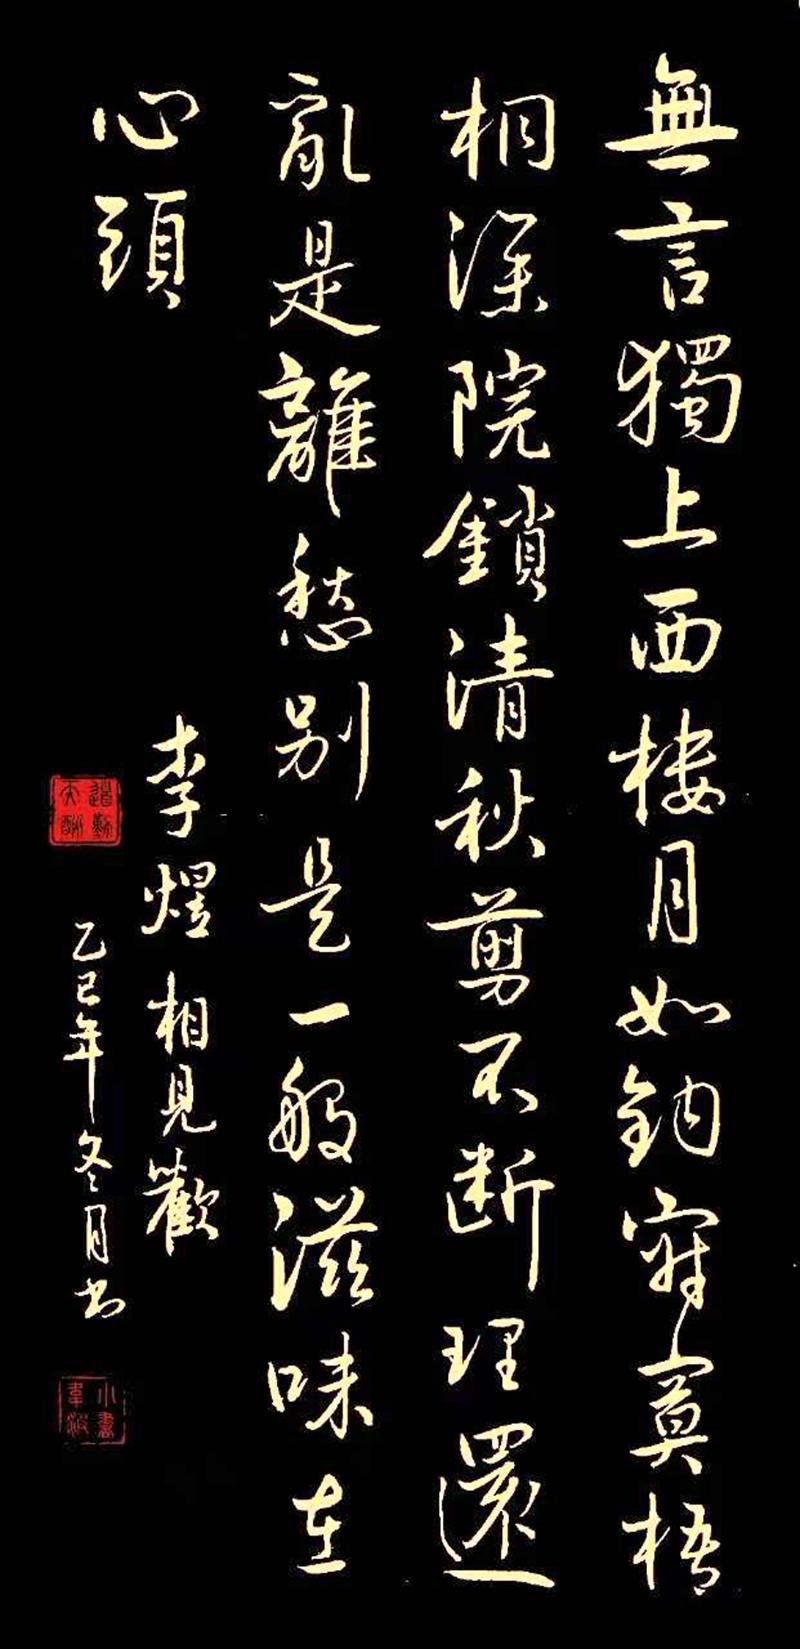 無言獨上西樓月如鈎寂寞梧
桐深院鎖清秋剪不断理還
亂是離愁别是一般滋味在
心頭
李煜相見歡
乙巳年冬月書
天道酬勤